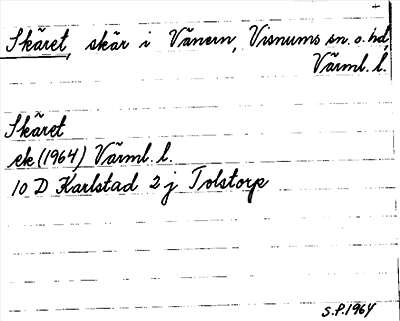 Skäret, skär i Vänern, Visnums sn. o. hd,
Värml. l.
Skäret
ek (1964) Värml. l.
10 D Karlstad 2 j Tolstorp
S.P. 1964